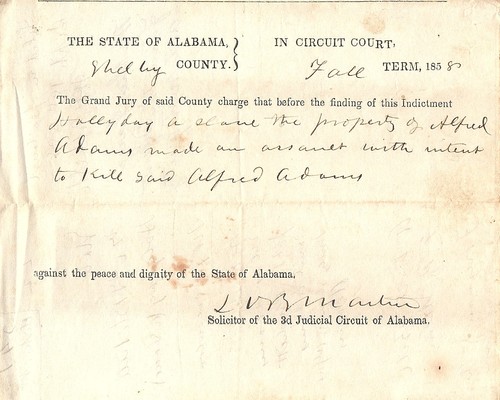 THE STATE OF ALABAMA, } IN CIRCUIT COURT,
Shelby COUNTY. Fall TERM, 1858
The Grand Jury of said County charge that before the finding of this Indictment
Hollyday a slave the property of Alfred
Adams made an assault with intent
to Kill said Alfred Adams
against the peace and dignity of the State of Alabama,
Martin
Solicitor of the 3d Judicial Circuit of Alabama.